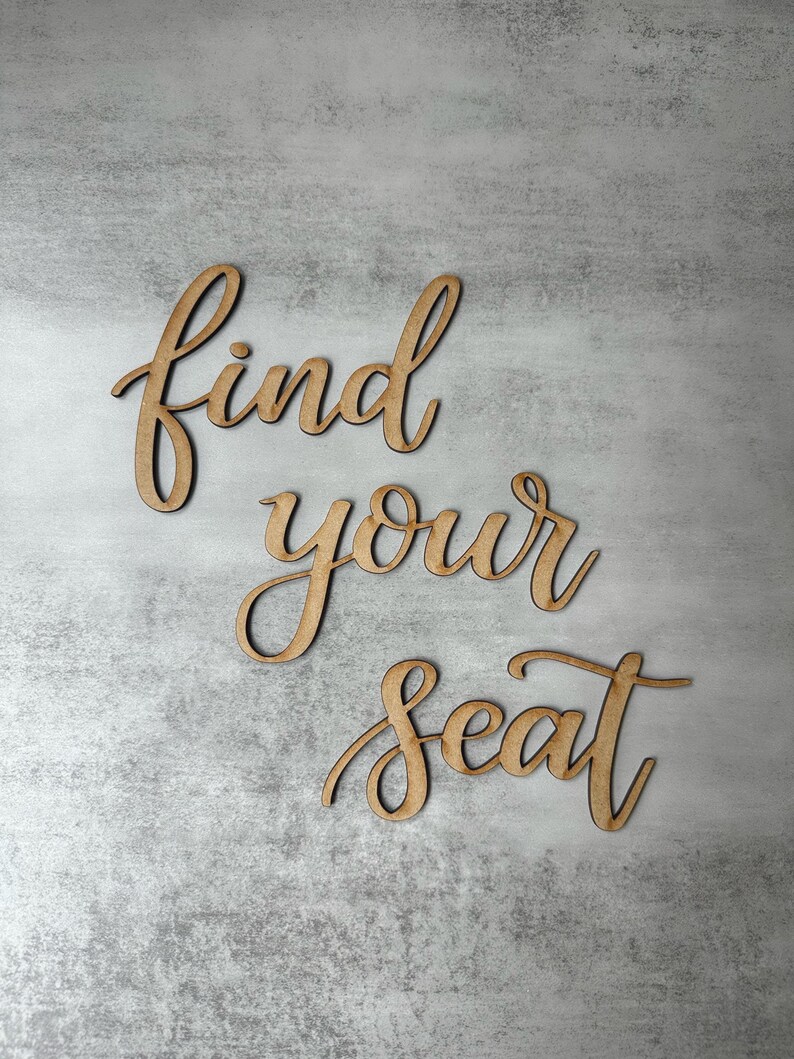 find
your
seat